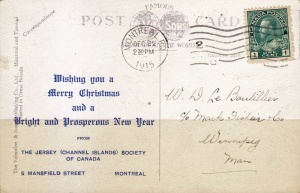 FAMOUS
POST CARD
Correspondence
MONTREAL
DEC 22
2 PM
1915
2
CANADA POSTAGE
1 1
Wishing you a
Merry Christmas
and a
Bright and Prosperous New Year
FROM
THE JERSEY (CHANNEL ISLANDS) SOCIETY
OF CANADA
5 MANSFIELD STREET MONTREAL
W. D. Le Boutillier
c/o Mark Fisher & Co
Winnipeg
Man